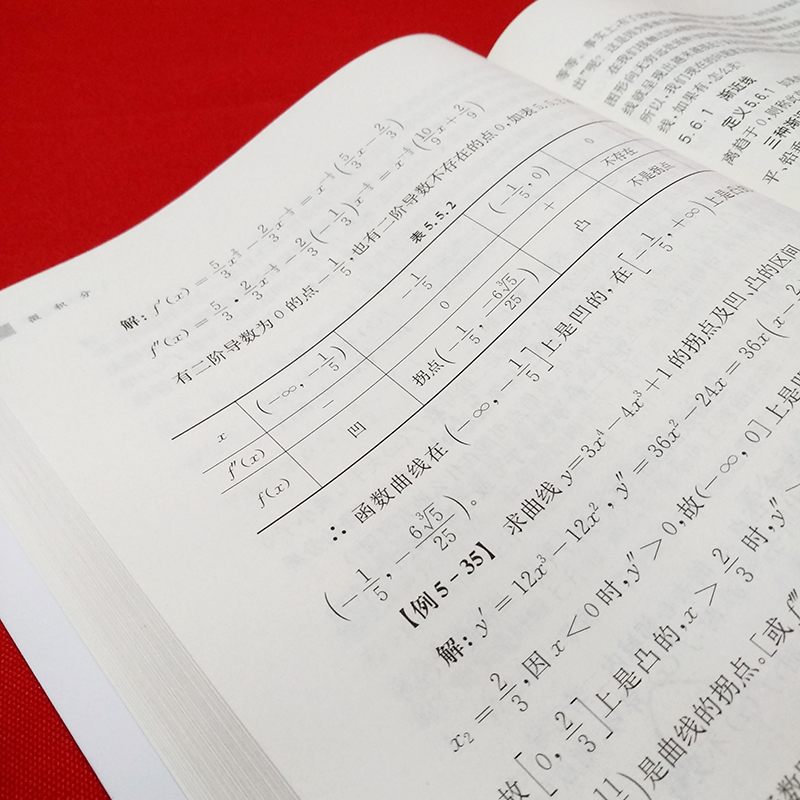 微积分
解: f′(x) = 5/3 x^{2/3} − 2/3 x^{−1/3} = x^{−1/3}(5/3 x − 2/3)
f″(x) = 5/3 · 2/3 x^{−1/3} − 2/3(−1/3)x^{−4/3} = x^{−4/3}(10/9 x + 2/9)
有二阶导数为 0 的点 −1/5, 也有二阶导数不存在的点 0, 如表 5.5.2
表 5.5.2
x (−∞, −1/5) −1/5 (−1/5, 0) 0
f″(x) − 0 + 不存在
f(x) 凹 拐点(−1/5, −6∛5/25) 凸 不是拐点
∴ 函数曲线在 (−∞, −1/5] 上是凹的, 在 [−1/5, +∞) 上是凸的
(−1/5, −6∛5/25)。
【例 5-35】 求曲线 y=3x⁴−4x³+1 的拐点及凹、凸的区间
解: y′ = 12x³−12x², y″ = 36x²−24x = 36x(x−2
x₂ = 2/3, 因 x < 0 时, y″ > 0, 故(−∞, 0] 上是凹
故 [0, 2/3] 上是凸的, x > 2/3 时, y″ >
11 ) 是曲线的拐点。[或 f‴
等等, 事实上有
图形向无穷远
线就呈现出越来越
所以, 我们现在的
线, 如果有, 怎么求
5.6.1 渐近线
定义 5.6.1
离趋于 0, 则称此
三种渐近
平、铅垂